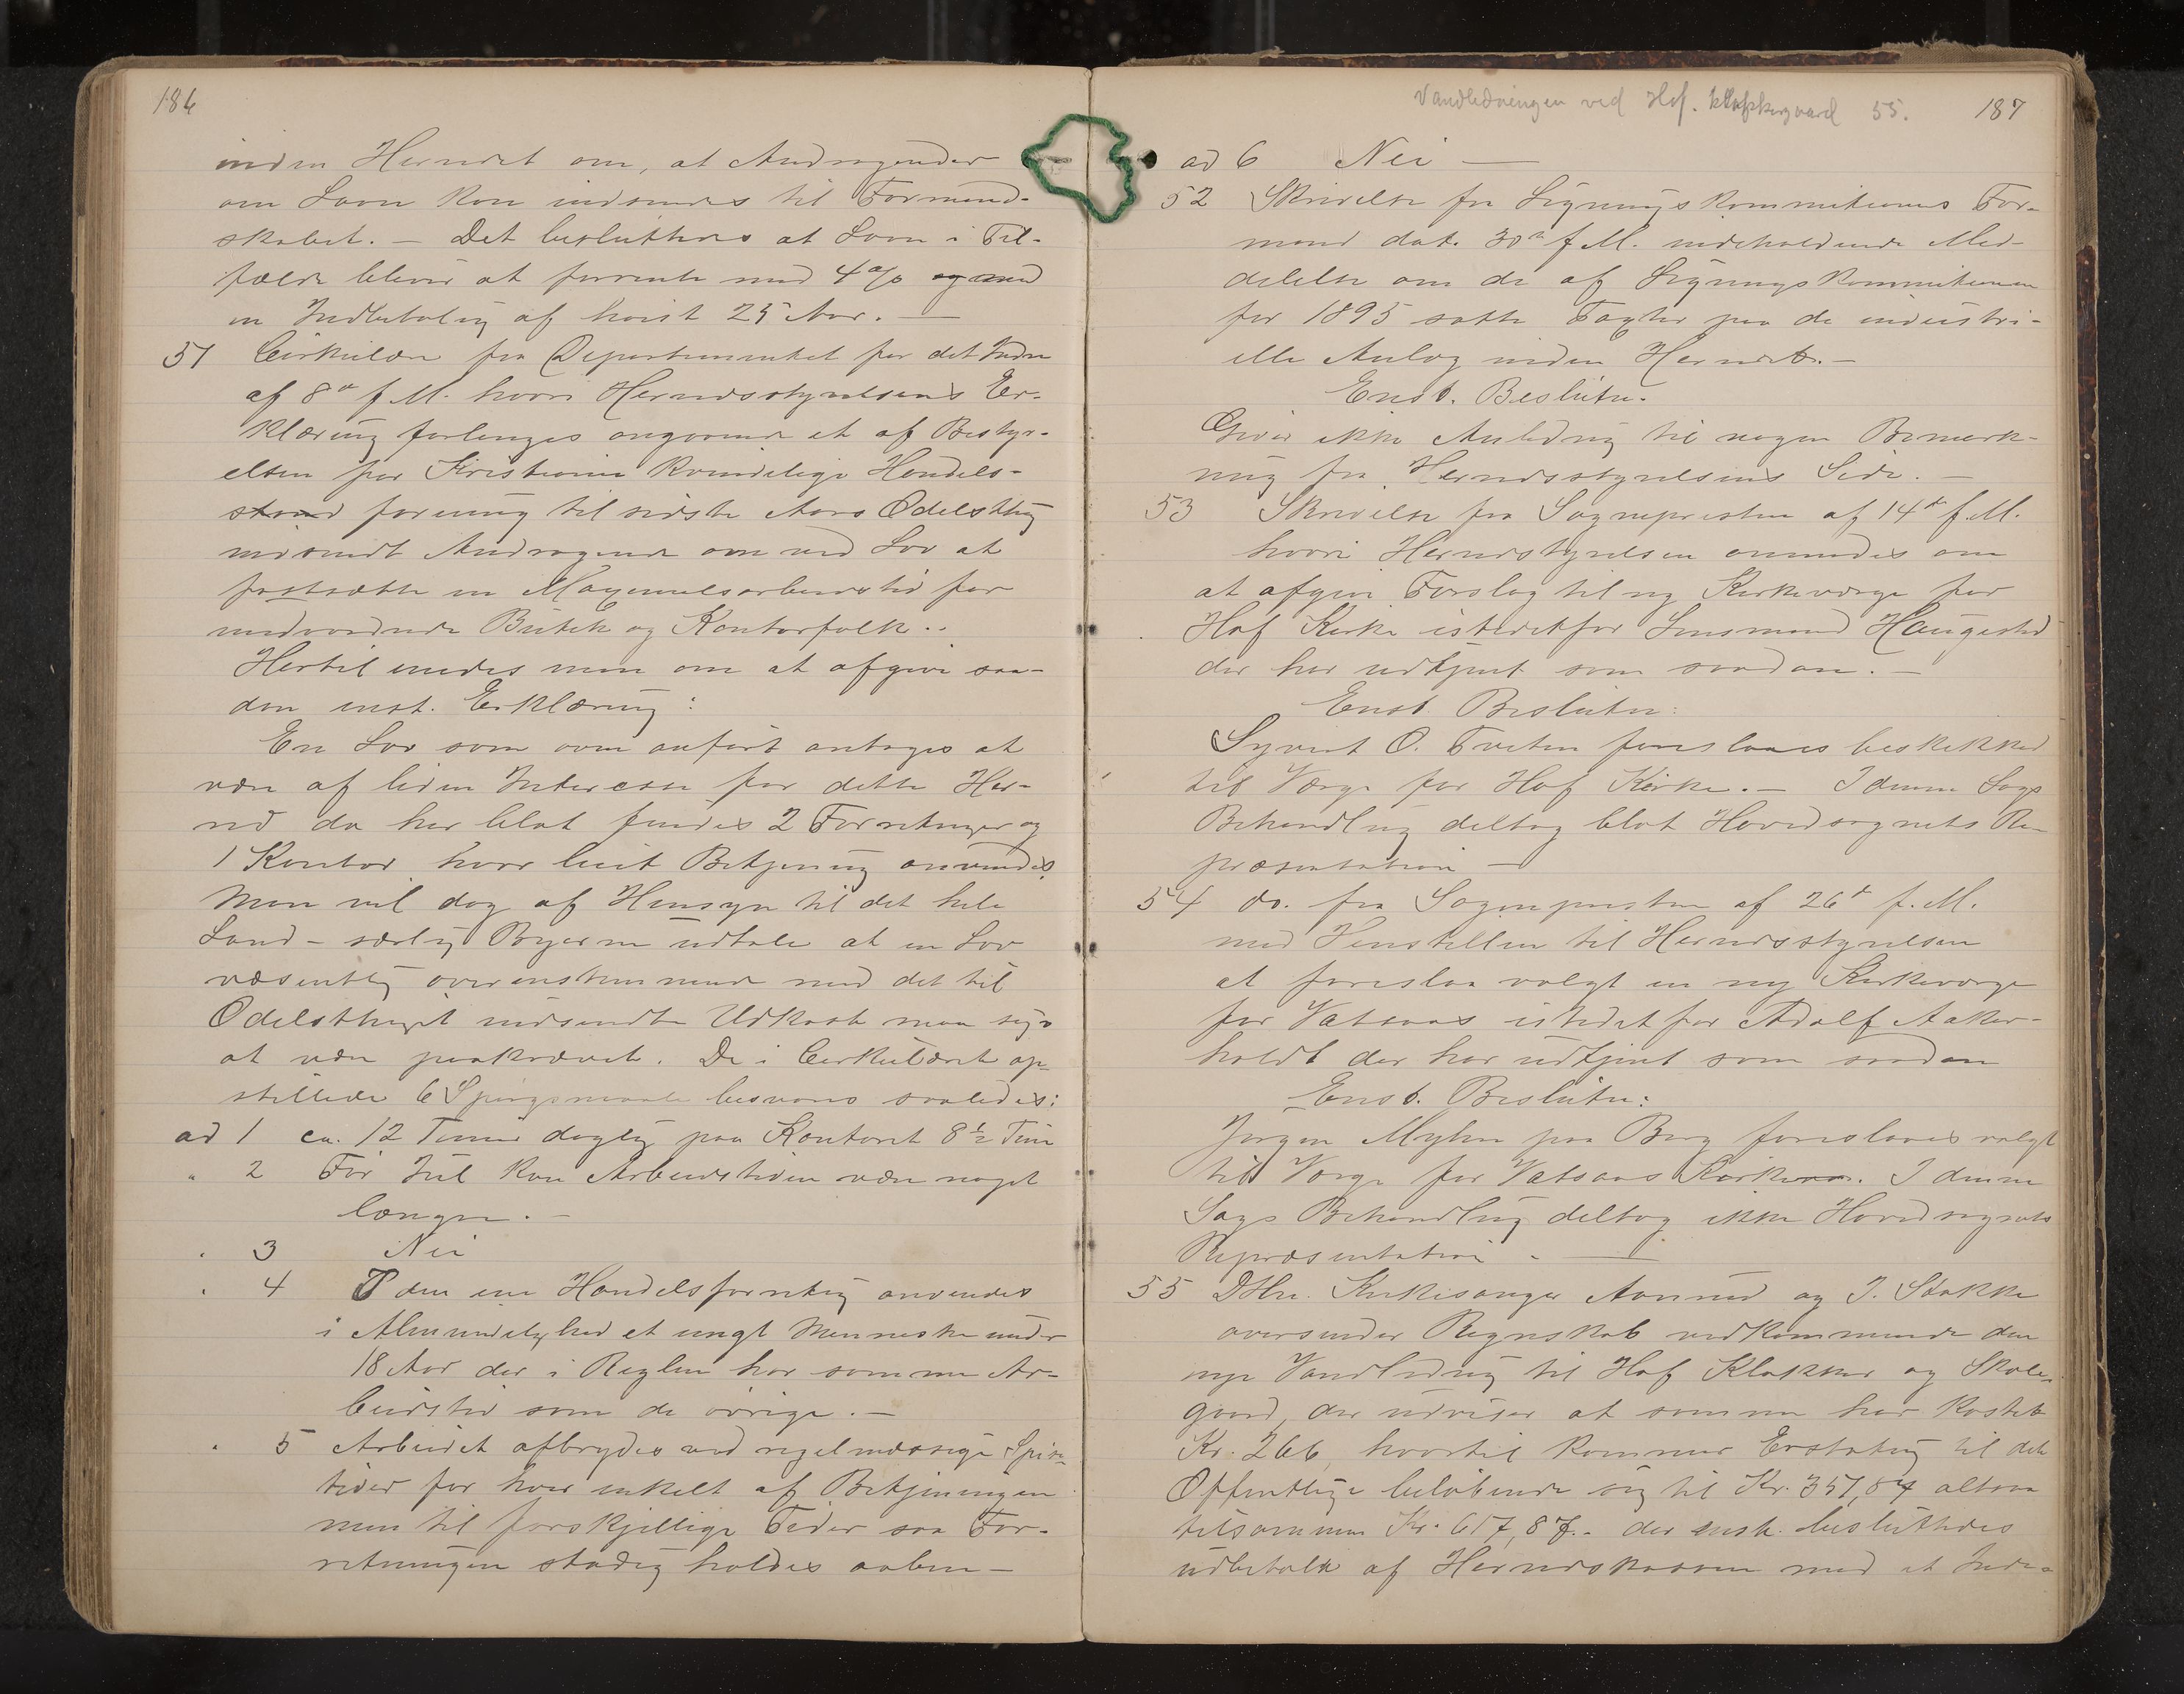 186
inden Herredet om, at Andragender
om Laan kan indsendes til Formand-
skabet. — Det besluttedes at Laan i Til-
fælde bliver at forrente med 4% og med
en Indbetaling af høist 25 Aar. —
51 Cirkulære fra Departementet for det Indre
af 8de f. M. hvori Herredsstyrelsens Er-
klæring forlanges angaaende et af Bestyr-
elsen for Kristiania kvindelige Handels-
stands forening til sidste Aars Odelsthing
indsendt Andragende om ved Lov at
fastsætte en Maximalsarbeidstid for
nedvordnede Butik og Kontorfolk..
Hertil enedes man om at afgive saa-
dan enst. Erklæring:
En Lov som oven anført antages at
være af liden Interesse for dette Her-
red da her blot findes 2 Forretninger og
1 Kontor hvor leiet Betjening anvendes.
Man vil dog af Hensyn til det hele
Land – særlig Byerne udtale at en Lov
væsentlig overensstemmende med det til
Odelsthinget indsendte Udkast maa siges
at være paakrævet. De i Cirkulæret op-
stillede 6 Spørgsmaale besvares saaledes:
ad 1 ca. 12 Timer daglig paa Kontoret 8½ Time
" 2 Før Jul kan Arbeidstiden være noget
længre. —
" 3 Nei
" 4 I den ene Handelsforretning anvendes
i Almindelighed et ungt Menneske under
18 Aar der i Reglen har samme Ar-
beidstid som de øvrige. —
" 5 Arbeidet afbrydes ved regelmæssige Spise-
tider for hver enkelt af Betjeningen
men til forskjellige Tider saa For-
retningen stadig holdes aaben —
Vandledningen ved Hof. Klokkergaard 55.
187
ad 6 Nei —
52 Skrivelse fra Ligningskommitionens For-
mand dat. 30te f. M. indeholdende Med-
delelse om de af Ligningskommitionen
for 1895 satte Taxter paa de industri-
elle Anlæg inden Herredet. —
Enst. Beslutn.
Giver ikke Anledning til nogen Bemærk-
ning fra Herredsstyrelsens Side. —
53 Skrivelse fra Sognepresten af 14de f. M.
hvori Herredsstyrelsen anmodes om
at afgive Forslag til ny Kirkeværge for
Hof Kirke istedetfor Lensmand Haugestad
der har udtjent som saadan. —
Enst. Beslutn:
Syvert O. Tveten foreslaaes beskikket
til Værge for Hof Kirke. — I denne Sags
Behandling deltog blot Hovedsognets Re-
præsentation —
54 do. fra Sognepresten af 26de f. M.
med Henstillen til Herredsstyrelsen
at foreslaa valgt en ny Kirkeværge
for Vatsaas istedetfor Adolf Aaker-
holdt der har udtjent som saadan
Enst. Beslutn:
Jørgen Myhre paa Berg foreslaaes valgt
til Værge for Vatsaas Kirke. I denne
Sags Behandling deltog ikke Hovedsognets
Repræsentation. —
55 DHr. Kirkesanger Aanrud og J. Stokke
oversender Regnskab vedkommende den
nye Vandledning til Hof Klokker og Skole-
gaard, der udviser at samme har kostet
Kr. 266, hvortil kommer Erstatning til det
Offentlige beløbende sig til Kr. 351,84 altsaa
tilsammen Kr. 617,87.- der enst. besluttedes
udbetalt af Herredskassen med et Inde-